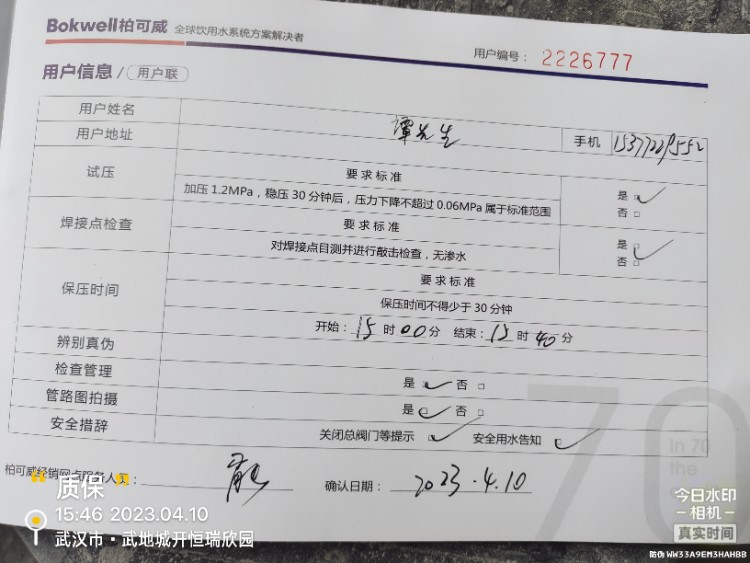 Bokwell柏可威 全球饮用水系统方案解决者
用户编号： 2226777
用户信息 / 用户联
用户姓名 谭先生
用户地址 手机
试压 要求标准
加压1.2MPa，稳压30分钟后，压力下降不超过0.06MPa属于标准范围
是
否
焊接点检查 要求标准
对焊接点目测并进行敲击检查，无渗水
是
否
保压时间 要求标准
保压时间不得少于30分钟
开始：15时00分 结束：15时40分
辨别真伪
检查管理 是 否
管路图拍摄 是 否
安全措辞 关闭总阀门等提示 安全用水告知
柏可威经销网点服务人员：
确认日期： 2023.4.10
70
In 70
the
质保
15:46 2023.04.10
武汉市·武地城开恒瑞欣园
今日水印
相机
真实时间
防伪 WW33A9EM3HAHBB